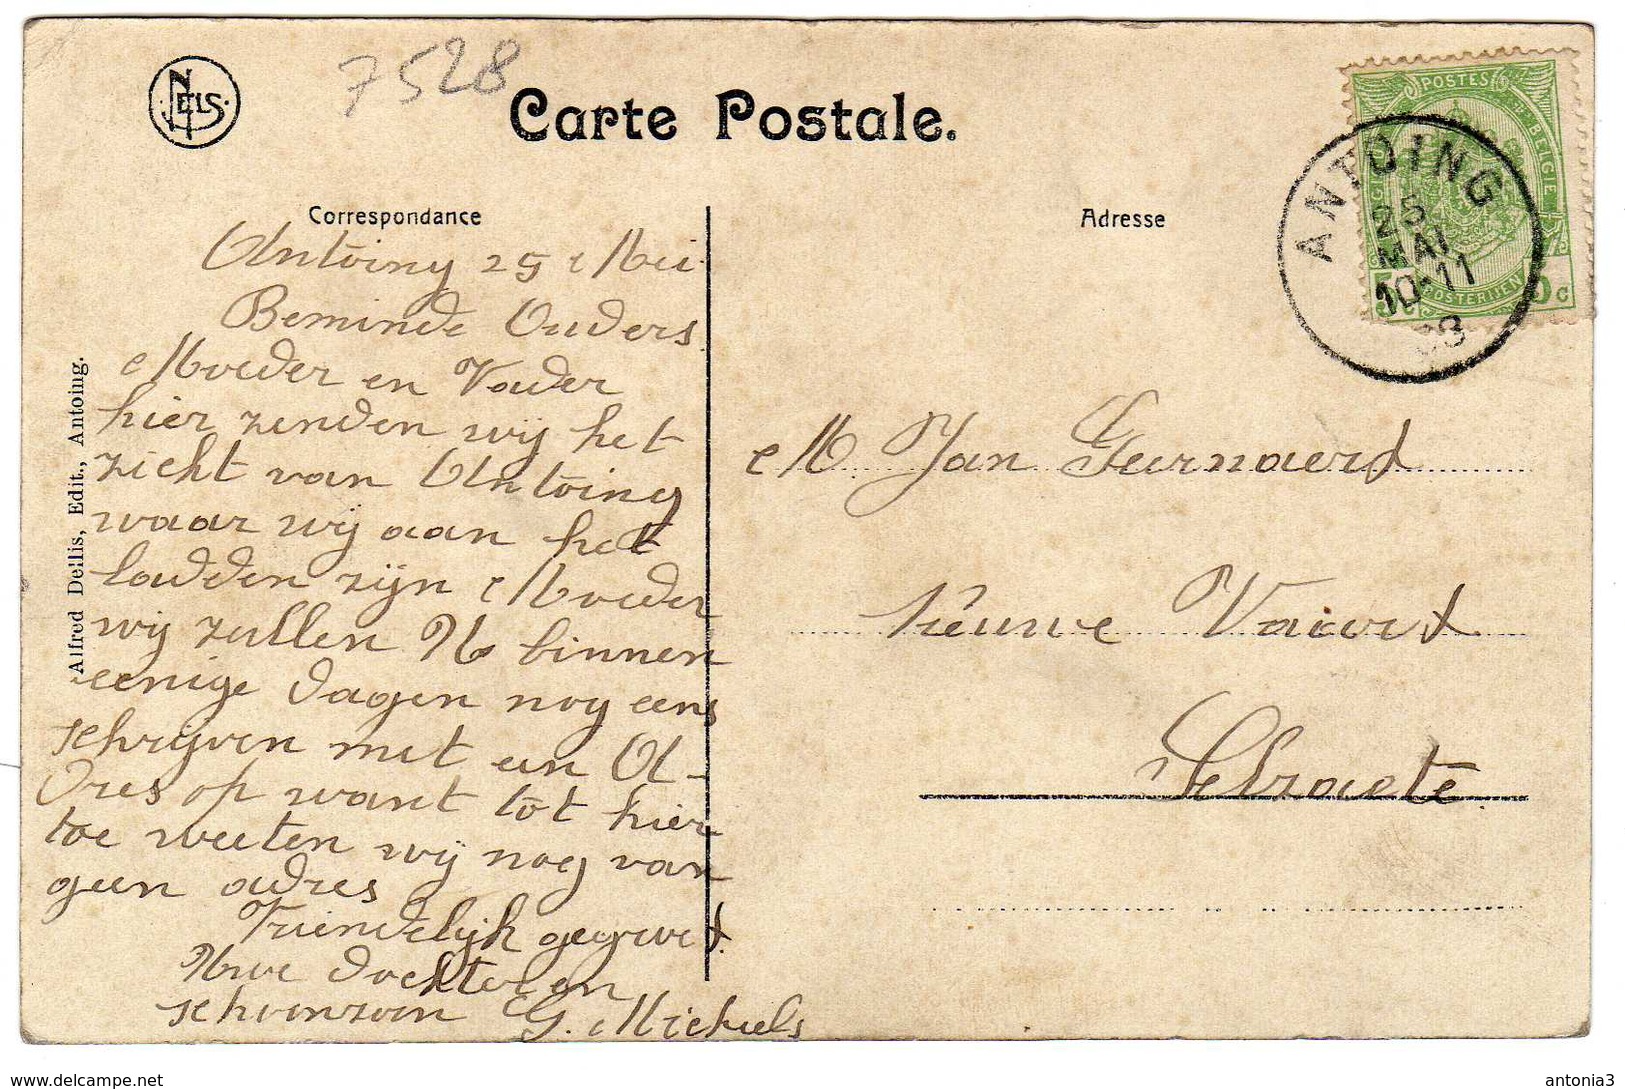 NELS
7528
Carte Postale.
Correspondance
Adresse
POSTES
BELGIE
POSTERIJEN
5c
ANTOING
25
MAI
10-11
Antoing 25 Mei
Beminde Ouders
Moeder en Vader
hier zenden wij het
zicht van Antoing
waar wij aan het
ladden zijn Moeder
wij zullen U binnen
eenige dagen nog eens
schrijven met een Ad-
dres op want tot hier
toe weeten wij nog van
geen adres
Vriendelijk gegroet
Uwe dochter en
schoonzoon G. Michiels
M. Jan Geernaerd
Nieuwe Vaart
Selzaete
Alfred Dellis, Edit., Antoing.
www.delcampe.net
antonia3